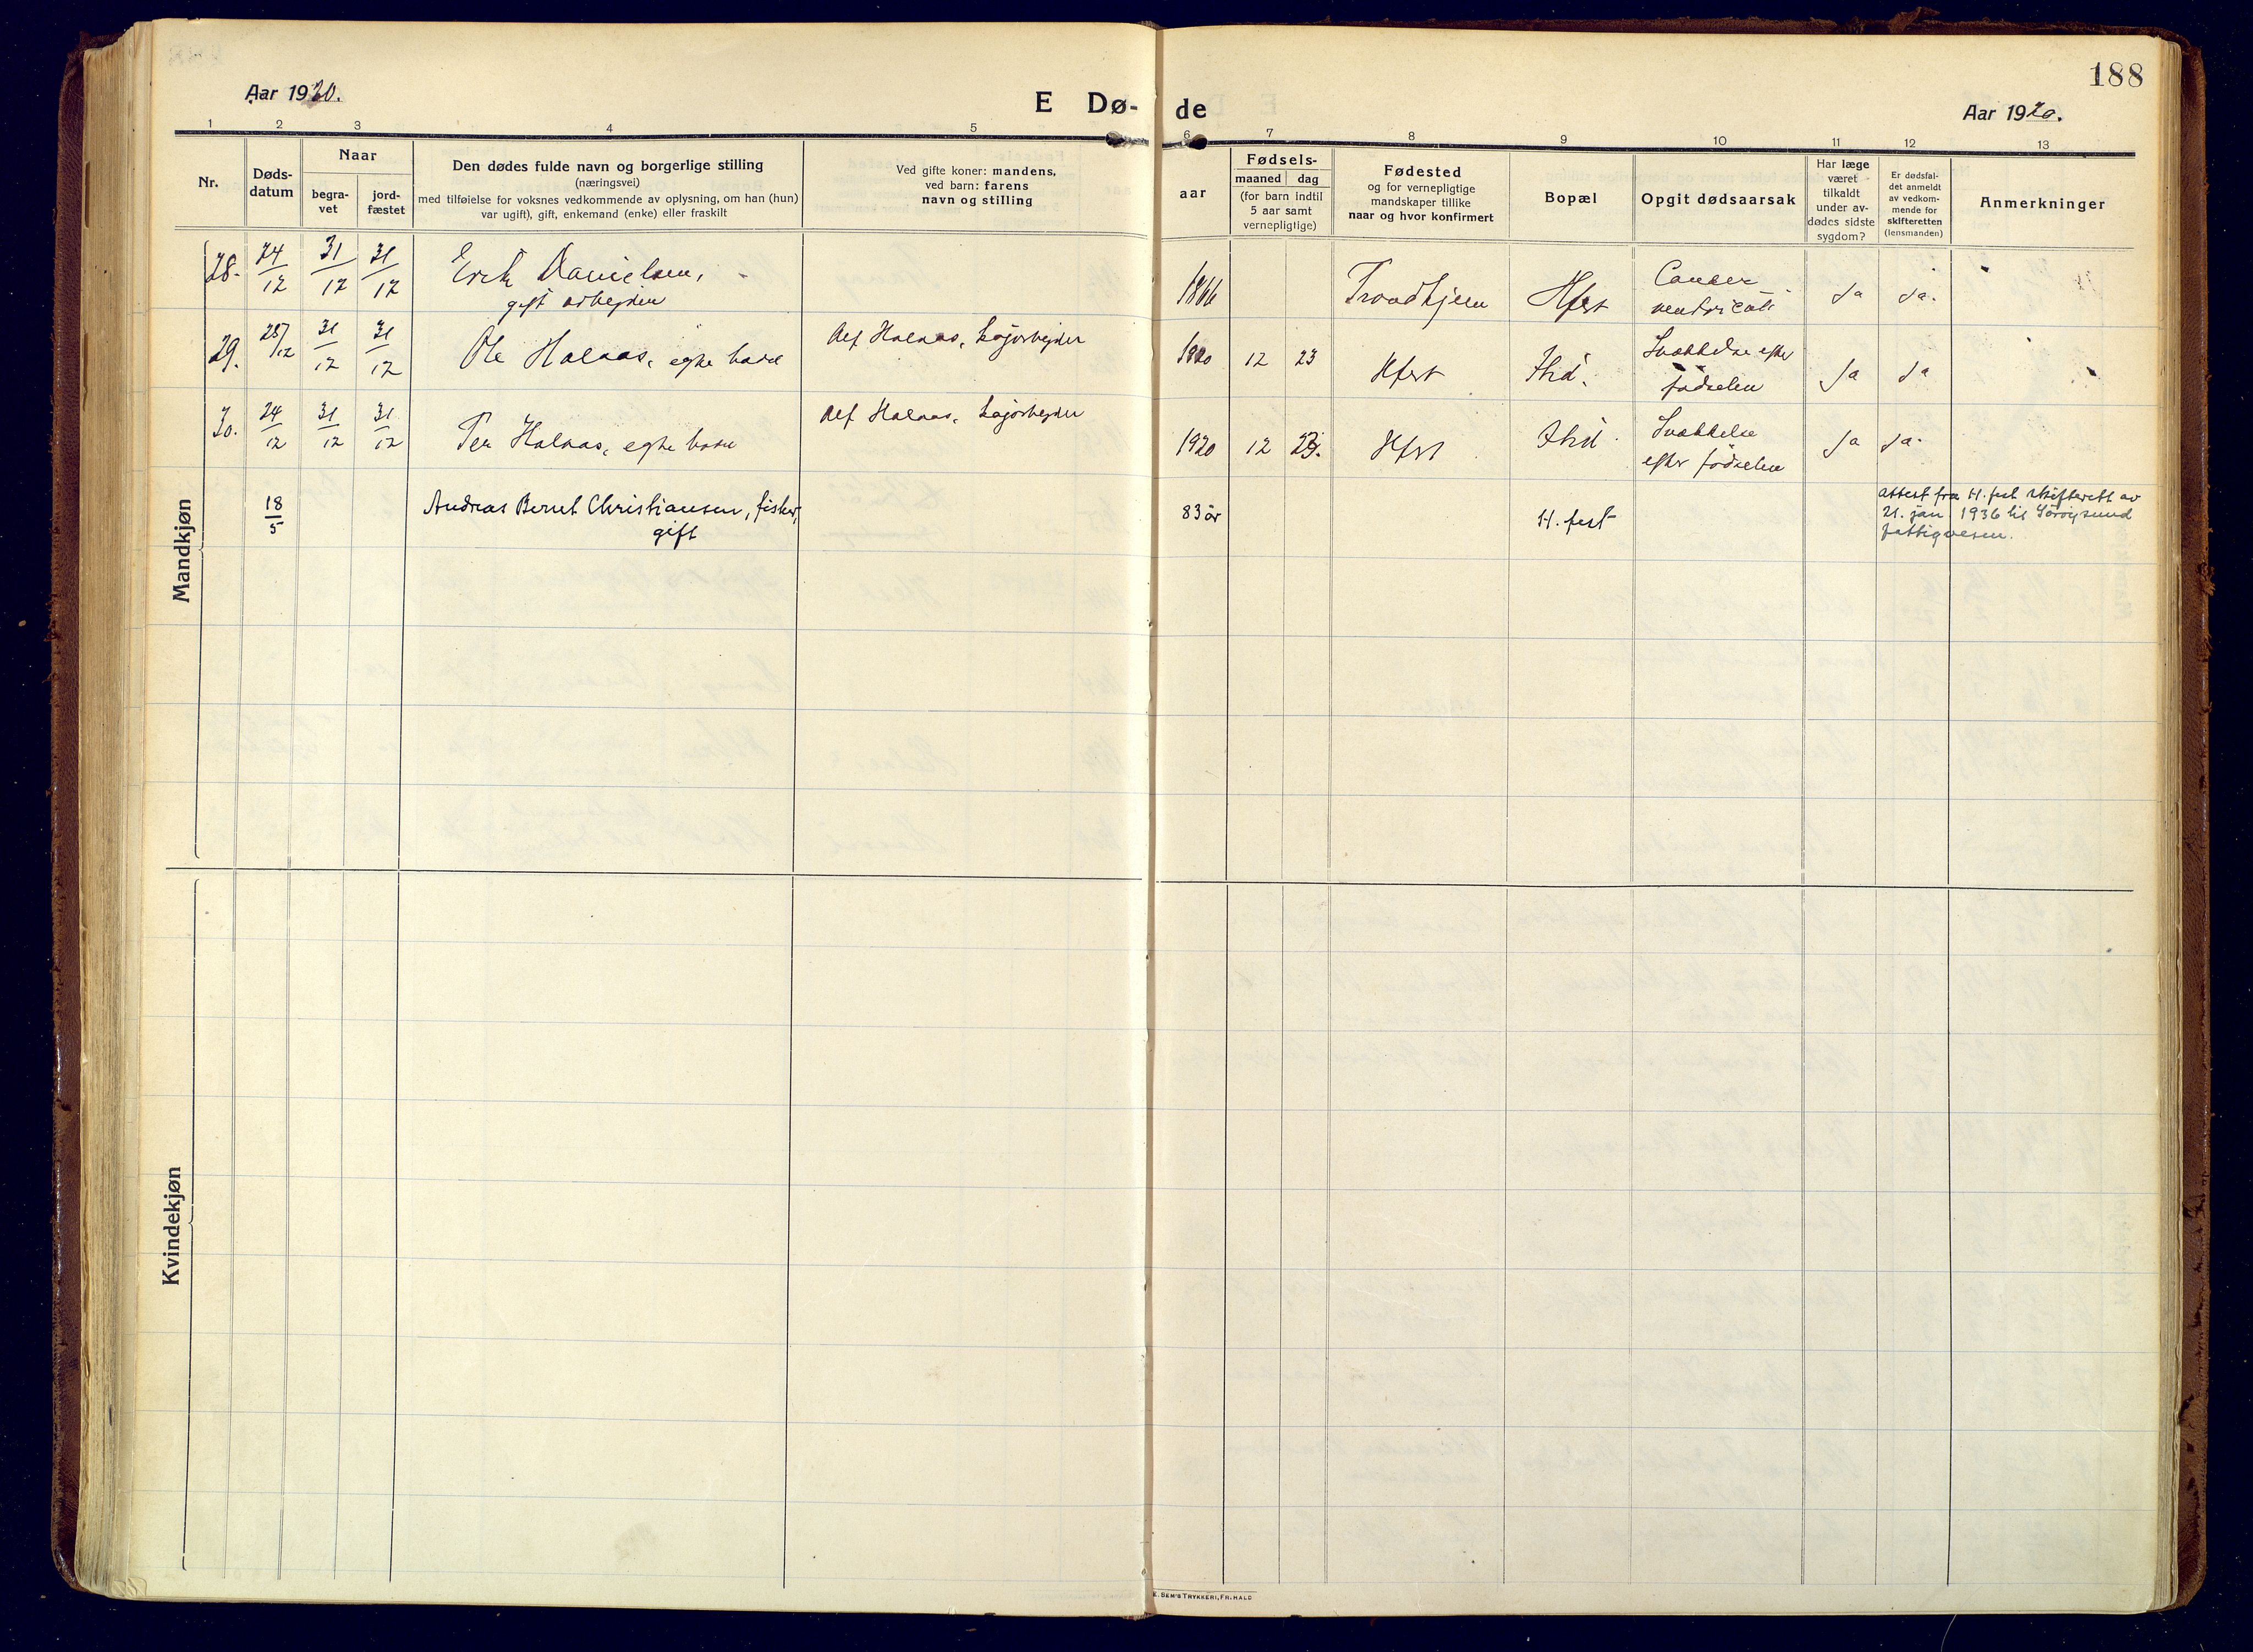 188
Aar 1920.
E Dø-
de
Aar 1920.
1 2 3 4 5 6 7 8 9 10 11 12 13
Nr.
Døds-
datum
Naar
begra-
vet
jord-
fæstet
Den dødes fulde navn og borgerlige stilling
(næringsvei)
med tilføielse for voksnes vedkommende av oplysning, om han (hun)
var ugift), gift, enkemand (enke) eller fraskilt
Ved gifte koner: mandens,
ved barn: farens
navn og stilling
Fødsels-
aar
maaned dag
(for barn indtil
5 aar samt
vernepligtige)
Fødested
og for vernepligtige
mandskaper tillike
naar og hvor konfirmert
Bopæl
Opgit dødsaarsak
Har læge
været
tilkaldt
under av-
dødes sidste
sygdom?
Er dødsfal-
det anmeldt
av vedkom-
mende for
skifteretten
(lensmanden)
Anmerkninger
Mandkjøn
28. 24/12 31/12 31/12 Erik Danielsen, 1866 Trondhjem Hfest Cancer Ja Ja.
gift arbeider ventriculi
29. 28/12 31/12 31/12 Ole Halnas, egte barn Alf Halnas, Løjarbejder 1920 12 23 Hfest Ibid. Svækkelse efter Ja Ja
fødselen
30. 24/12 31/12 31/12 Per Halnas, egte barn Alf Halnas, Løjarbejder 1920 12 23. Hfest Ibid. Svækkelse Ja Ja.
efter fødselen
18/5 Andreas Bernt Christiansen, fisker, 83 år H. fest attest fra H. fest skifterett av
gift 21. jan. 1936 til Sørøysund
fattigvesen.
Kvindekjøn
E. SEM'S TRYKKERI, FR.HALD